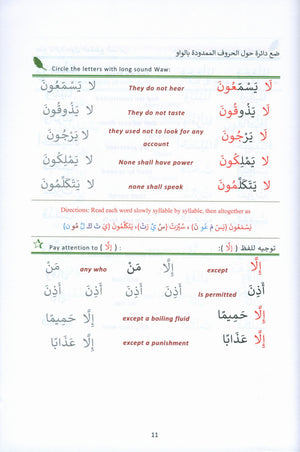 ضع دائرة حول الحروف الممدودة بالواو
Circle the letters with long sound Waw:
لَا يَسْمَعُونَ They do not hear لا يَسْمَعُونَ
لَا يَذُوقُونَ They do not taste لا يَذُوقُونَ
لَا يَرْجُونَ they used not to look for any account لا يَرْجُونَ
لَا يَمْلِكُونَ None shall have power لا يَمْلِكُونَ
لَا يَتَكَلَّمُونَ none shall speak لا يَتَكَلَّمُونَ
Directions: Read each word slowly syllable by syllable, then altogether as
يَسْمَعُونَ (يَسْ مَ عُو نَ)، سُيِّرَتْ (سُ يْ يِ رَتْ)، يَتَكَلَّمُونَ (يَ تَ كَ لْ لَ مُو نَ)
Pay attention to ( إِلَّا ) : توجيه للفظ ( إِلَّا ):
إِلَّا except إِلَّا مَنْ any who مَنْ
أَذِنَ Is permitted أَذِنَ أَذِنَ أَذِنَ أَذِنَ
إِلَّا حَمِيمًا except a boiling fluid إِلَّا حَمِيمًا
إِلَّا عَذَابًا except a punishment إِلَّا عَذَابًا
11